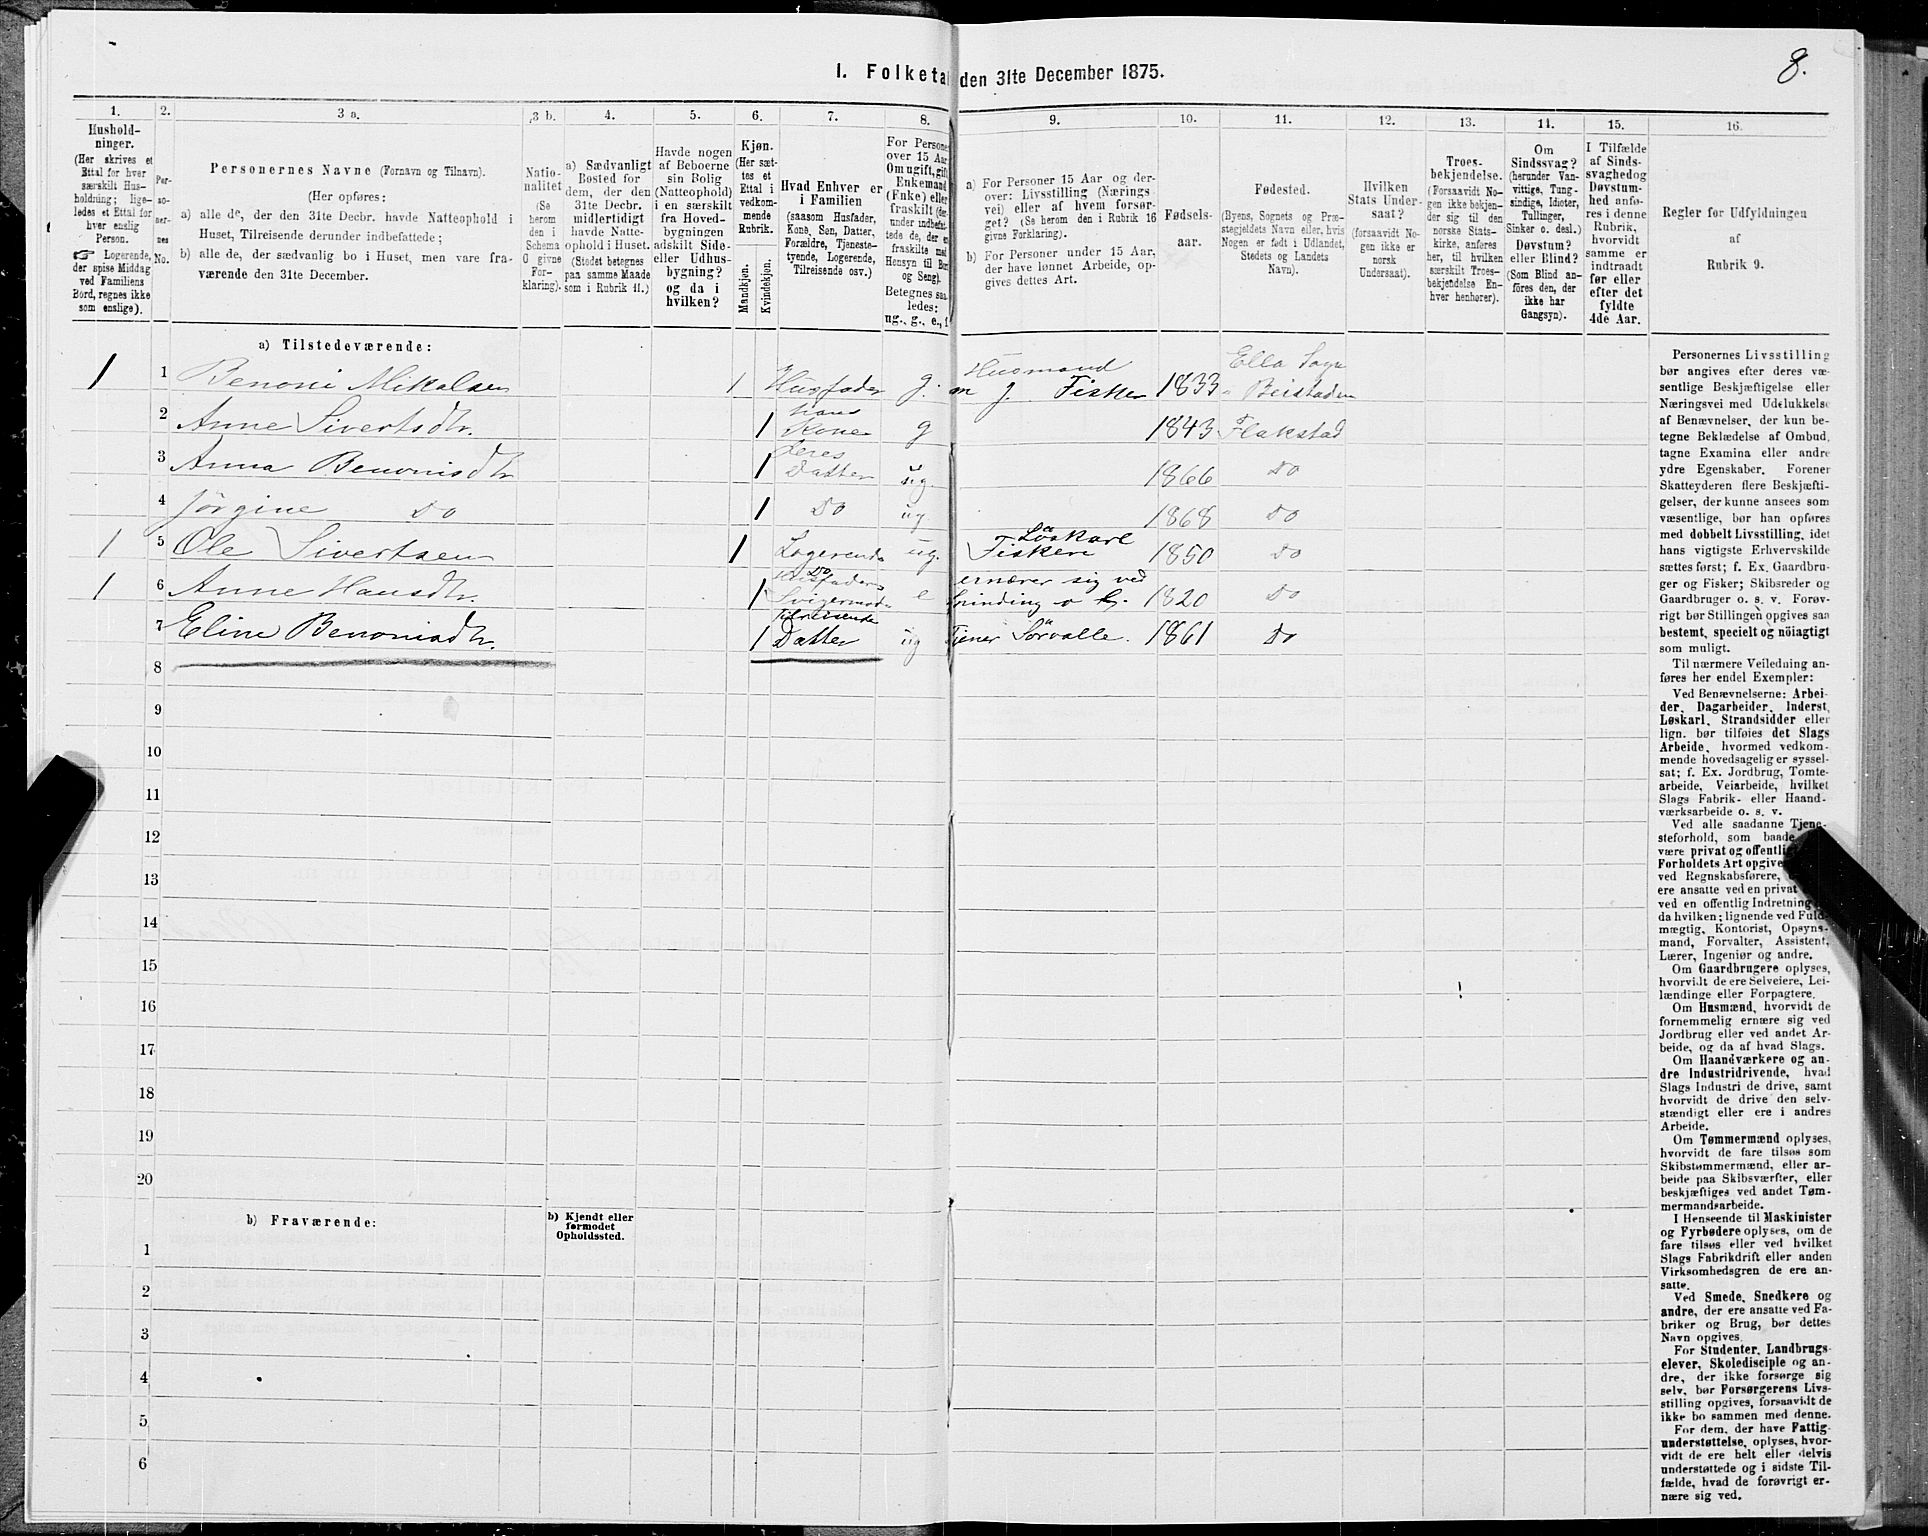 8.
I. Folketal den 31te December 1875.
1. 2. 3 a. 3 b. 4. 5. 6. 7. 8. 9. 10. 11. 12. 13. 14. 15. 16.
Hushold-
ninger.
(Her skrives et
Ettal for hver
særskilt Hus-
holdning; lige-
ledes et Ettal for
hver enslig
Person.
☛ Logerende,
der spise Middag
ved Familiens
Bord, regnes ikke
som enslige).
Per-
so-
ner-
nes
No.
Personernes Navne (Fornavn og Tilnavn).
(Her opføres:
a) alle de, der den 31te Decbr. havde Natteophold i
Huset, Tilreisende derunder indbefattede;
b) alle de, der sædvanlig bo i Huset, men vare fra-
værende den 31te December.
Natio-
nalitet
(Se
herom
den i
Schema
O givne
For-
klaring).
a) Sædvanligt
Bosted for
dem, der den
31te Decbr.
midlertidigt
havde Natte-
ophold i Huset.
(Stedet betegnes
paa samme Maade
som i Rubrik 11.)
Havde nogen
af Beboerne
sin Bolig
(Natteophold)
i en særskilt
fra Hoved-
bygningen
adskilt Side-
eller Udhus-
bygning?
og da i
hvilken?
Kjøn.
(Her sæt-
tes et
Ettal i
vedkom-
mende
Rubrik.
Mandkjøn.
Kvindekjøn.
Hvad Enhver er
i Familien
(saasom Husfader,
Kone, Søn, Datter,
Forældre, Tjeneste-
tyende, Logerende,
Tilreisende osv.)
For Persone
over 15 Aar
Om ugift, gift
Enkemand
(Enke) eller
fraskilt (der-
under indbefat-
tede de, der er
fraskilte med
Hensyn til Bor
og Seng).
Betegnes saa-
ledes:
ug., g., e., f
a) For Personer 15 Aar og der-
over: Livsstilling (Nærings-
vei) eller af hvem forsør-
get? (Se herom den i Rubrik 16
givne Forklaring).
b) For Personer under 15 Aar,
der have lønnet Arbeide, op-
gives dettes Art.
Fødsels-
aar.
Fødested.
(Byens, Sognets og Præ-
stegjeldets Navn eller, hvis
Nogen er født i Udlandet,
Stedets og Landets
Navn).
Hvilken
Stats Under-
saat?
(forsaavidt No-
gen ikke er
norsk
Undersaat).
Troes-
bekjendelse.
(Forsaavidt No-
gen ikke bekjen-
der sig til den
norske Stats-
kirke, anføres
her, til hvilken
særskilt Troes-
bekjendelse En-
hver henhører).
Om
Sindssvag?
(herunder Van-
vittige, Tung-
sindige, Idioter,
Tullinger,
Sinker o. desl.)
Døvstum?
eller Blind?
(Som Blind an-
føres den, der
ikke har
Gangsyn).
I Tilfælde
af Sinds-
svaghed og
Døvstum-
hed anfø-
res i denne
Rubrik,
hvorvidt
samme er
indtraadt
før eller
efter det
fyldte
4de Aar.
Regler før Udfyldningen
af
Rubrik 9.
a) Tilstedeværende:
Husmand Ella Sogn
1 1 Benoni Mikalsen 1 Husfader g. m J. Fisker 1833 Beistaden
hans
2 Anne Sivertsdtr. 1 Kone g 1843 Flakstad
deres
3 Anna Benonisdtr 1 Datter ug. 1866 Do
4 Jörgine Do 1 Do ug 1868 Do
Löskarl
1 5 Ole Sivertsen 1 Logerende ug. Fiskeri 1850 Do
Do
Husfaders ernærer sig ved
1 6 Anne Hansdtr. 1 Svigermod. e Spinding o 1820 Do
Tilreisende
7 Eline Benonisdtr. 1 Datter ug Tjener Sörvalle. 1861 Do
8
9
10
11
12
13
14
15
16
17
18
19
20
b) Fraværende:
b) Kjendt eller
formodet
Opholdssted.
1
2
3
4
5
6
Personernes Livsstilling
bør angives efter deres væ-
sentlige Beskjæftigelse eller
Næringsvei med Udelukkelse
af Benævnelser, der kun be-
tegne Beklædelse af Ombud,
tagne Examina eller andre
ydre Egenskaber. Forener
Skatteyderen flere Beskjæfti-
gelser, der kunne ansees som
væsentlige, bør han opføres
med dobbelt Livsstilling, idet
hans vigtigste Erhvervskilde
sættes først; f. Ex. Gaardbru-
ger og Fisker; Skibsreder og
Gaardbruger o. s. v. Forøv-
rigt bør Stillingen opgives saa
bestemt, specielt og nöiagtigt
som muligt.
Til nærmere Veiledning an-
føres her endel Exempler:
Ved Benævnelserne: Arbei-
der, Dagarbeider, Inderst,
Løskarl, Strandsidder eller
lign. bør tilføies det Slags
Arbeide, hvormed vedkom-
mende hovedsagelig er syssel-
sat; f. Ex. Jordbrug, Tomte-
arbeide, Veiarbeide, hvilket
Slags Fabrik- eller Haand-
værksarbeide o. s. v.
Ved alle saadanne Tjene-
steforhold, som baade
være privat og offentlig
Forholdets Art opgive
ved Regnskabsførere,
ere ansatte ved en privat
ved en offentlig Indretning
da hvilken; lignende ved Fuld-
mægtig, Kontorist, Opsyns-
mand, Forvalter, Assistent,
Lærer, Ingeniør og andre.
Om Gaardbrugere oplyses,
hvorvidt de ere Selveiere, Lei-
lændinge eller Forpagtere.
Om Husmænd, hvorvidt de
fornemmelig ernære sig ved
Jordbrug eller ved andet Ar-
beide, og da af hvad Slags.
Om Haandværkere og an-
dre Industridrivende, hvad
Slags Industri de drive, samt
hvorvidt de drive den selv-
stændigt eller ere i andres
Arbeide.
Om Tømmermænd oplyses,
hvorvidt de fare tilsøs som
Skibstømmermænd, eller ar-
beide paa Skibsværfter, eller
beskjæftiges ved andet Tøm-
mermandsarbeide.
I Henseende til Maskinister
og Fyrbødere oplyses, om de
fare tilsøs eller ved hvilket
Slags Fabrikdrift eller anden
Virksomhedsgren de ere an-
satte.
Ved Smede, Snedkere og
andre, der ere ansatte ved Fa-
briker og Brug, bør dettes
Navn opgives.
For Studenter, Landbrugs-
elever, Skoledisciple og an-
dre, der ikke forsørge sig
selv, bør Forsørgerens Livs-
stilling opgives, forsaavidt de
ikke bo sammen med denne.
For dem, der have Fattig-
understøttelse, oplyses, hvor-
vidt de ere helt eller delvis
understøttede og i sidste Til-
fælde, hvad de forøvrigt er-
nære sig ved.